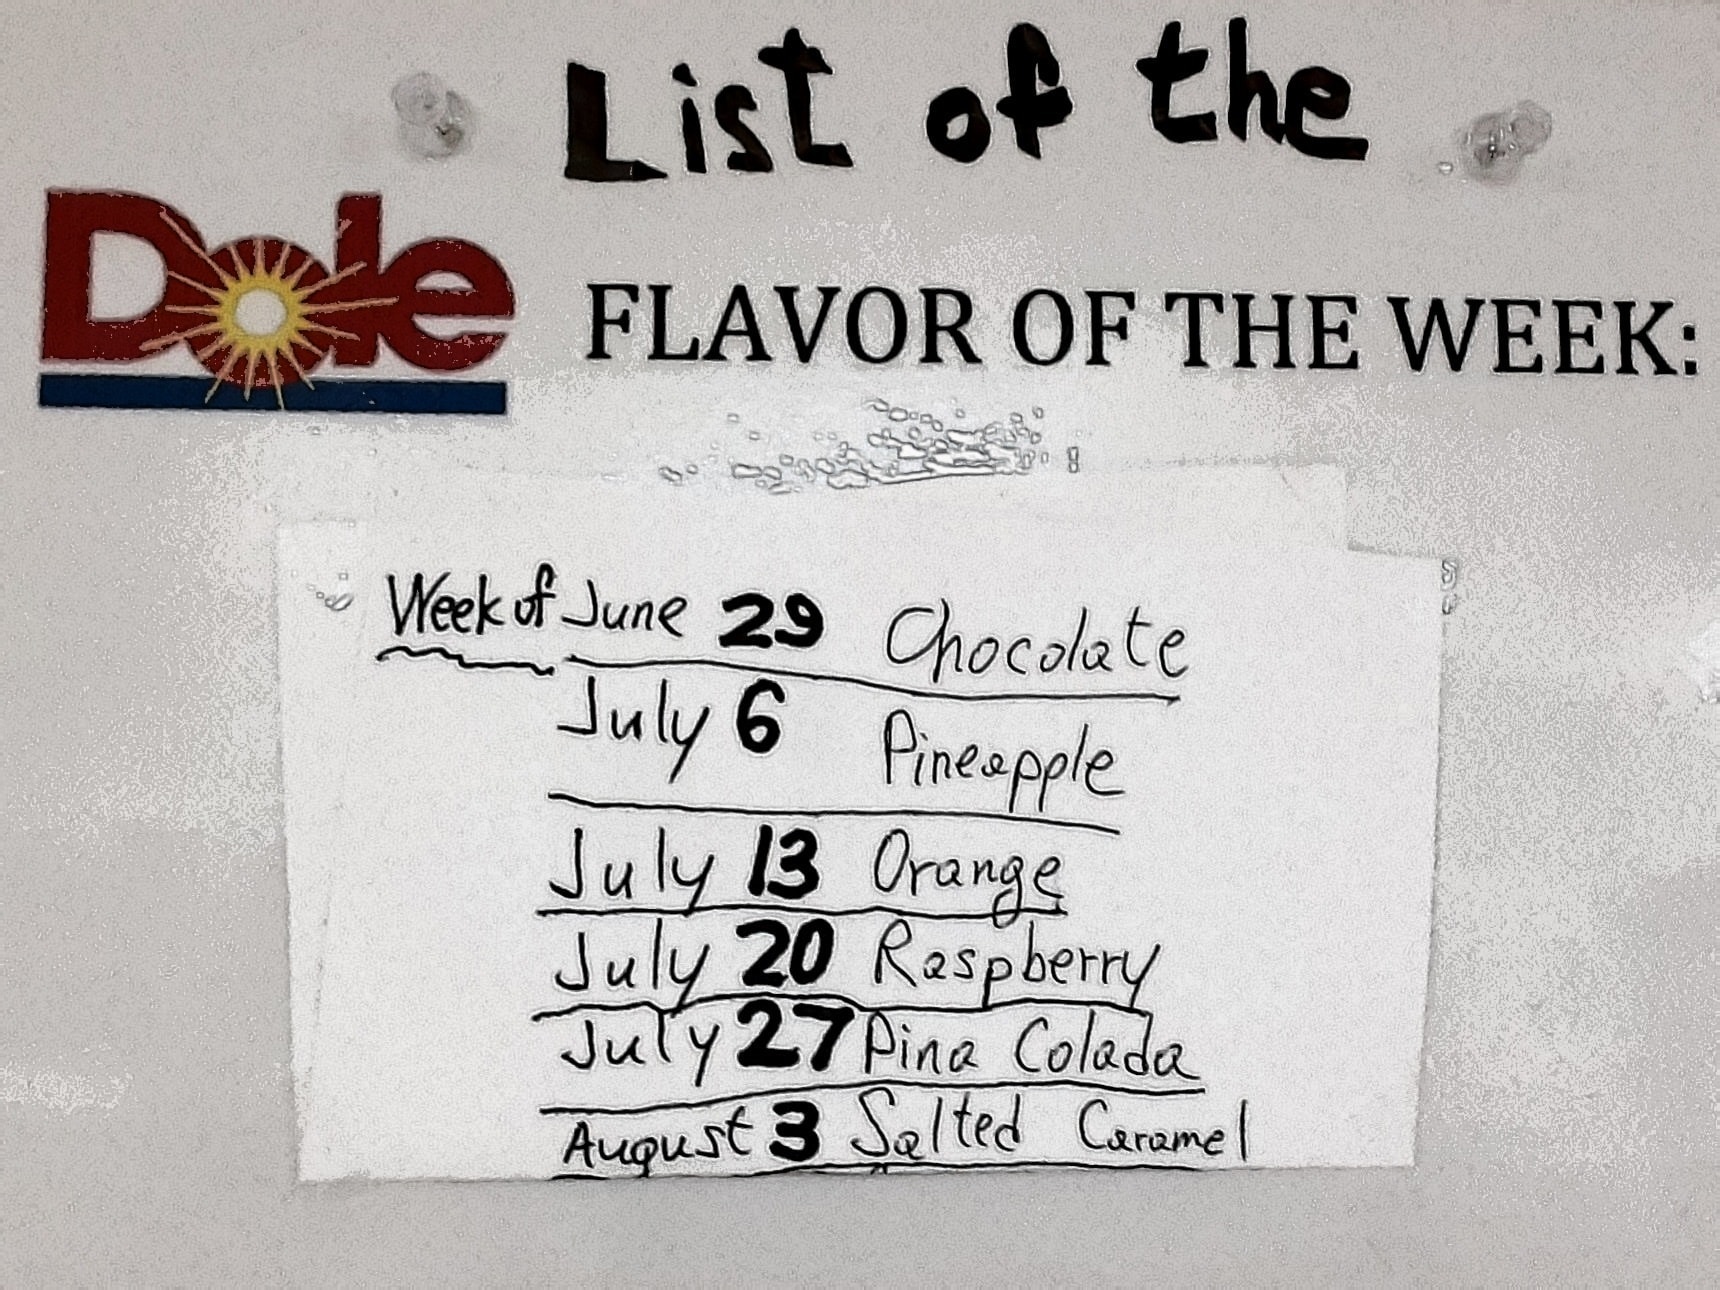 List of the
Dole FLAVOR OF THE WEEK:
Week of June 29 Chocolate
July 6 Pineapple
July 13 Orange
July 20 Raspberry
July 27 Pina Colada
August 3 Salted Caramel